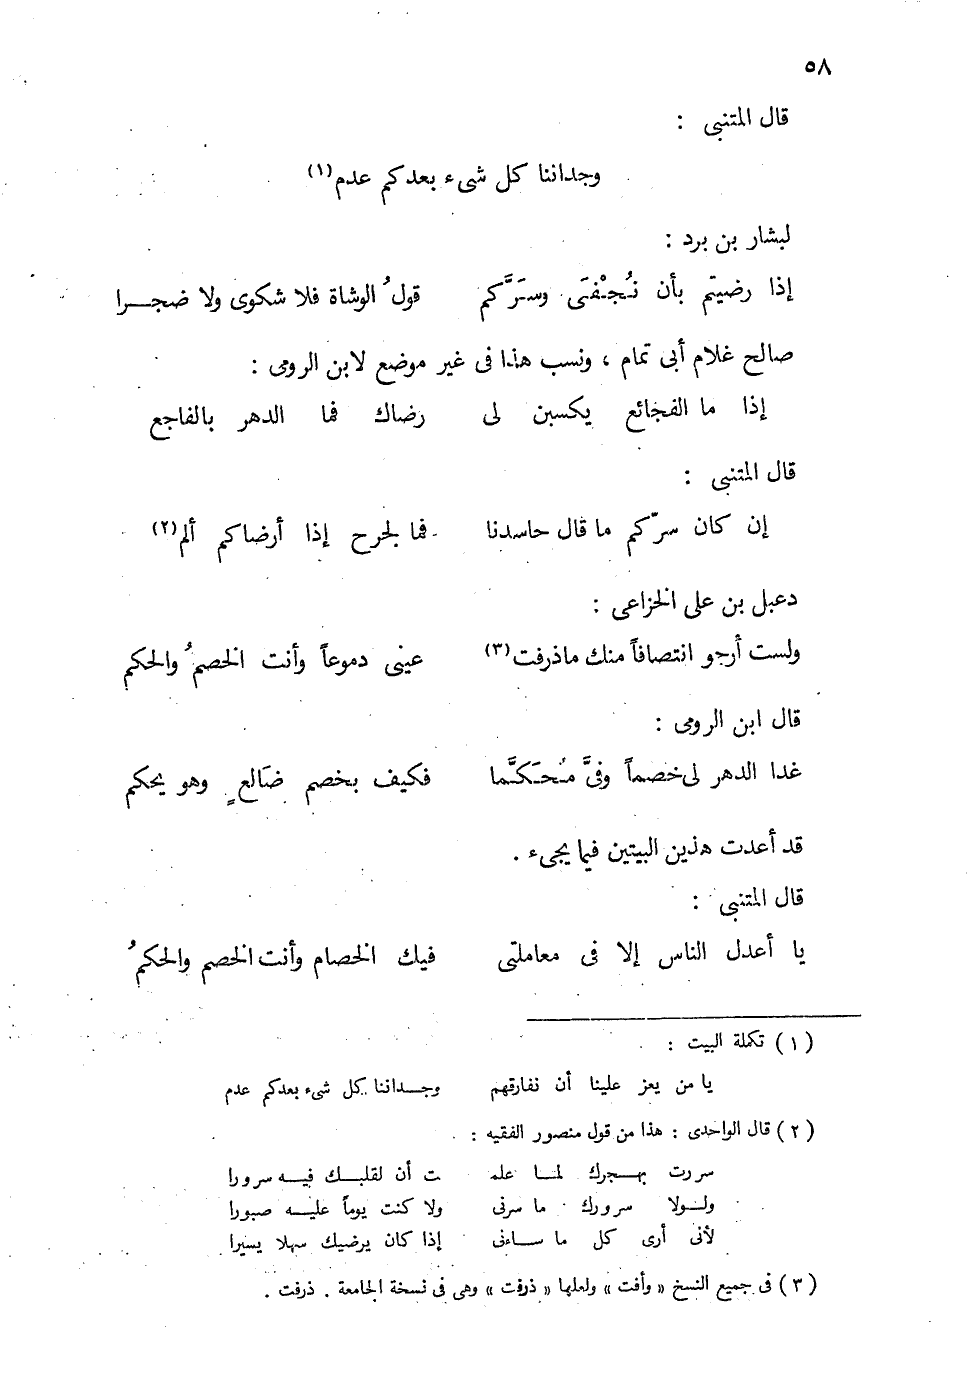 ٥٨
قال المتنبى :
وجداننا كل شىء بعدكم عدم(١)
لبشار بن برد :
إذا رضيتم بأن نُجْفَى وسَرَّكم قولُ الوشاة فلا شكوى ولا ضجرا
صالح غلام أبى تمام ، ونسب هذا فى غير موضع لابن الرومى :
إذا ما الفجائع يكسبن لى رضاك فما الدهر بالفاجع
قال المتنبى :
إن كان سرّكم ما قال حاسدنا فما لجرح إذا أرضاكم ألم(٢)
دعبل بن على الخزاعى :
ولست أرجو انتصافاً منك ماذرفت(٣) عينى دموعاً وأنت الخصمُ والحكم
قال ابن الرومى :
غدا الدهر لى خصماً وفىَّ مُحَكَّما فكيف بخصم ضَالعٍ وهو يحكم
قد أعدت هذين البيتين فيما يجىء .
قال المتنبى :
يا أعدل الناس إلا فى معاملتى فيك الخصام وأنت الخصم والحكمُ
(١) تكملة البيت :
يا من يعز علينا أن نفارقهم وجداننا كل شىء بعدكم عدم
(٢) قال الواحدى : هذا من قول منصور الفقيه :
سررت بهجرك لما علمـ ـت أن لقلبك فيه سرورا
ولولا سرورك ما سرنى ولا كنت يوماً عليه صبورا
لأنى أرى كل ما ساءنى إذا كان يرضيك سهلا يسيرا
(٣) فى جميع النسخ « وأفت » ولعلها « ذرفت » وهى فى نسخة الجامعة . ذرفت .